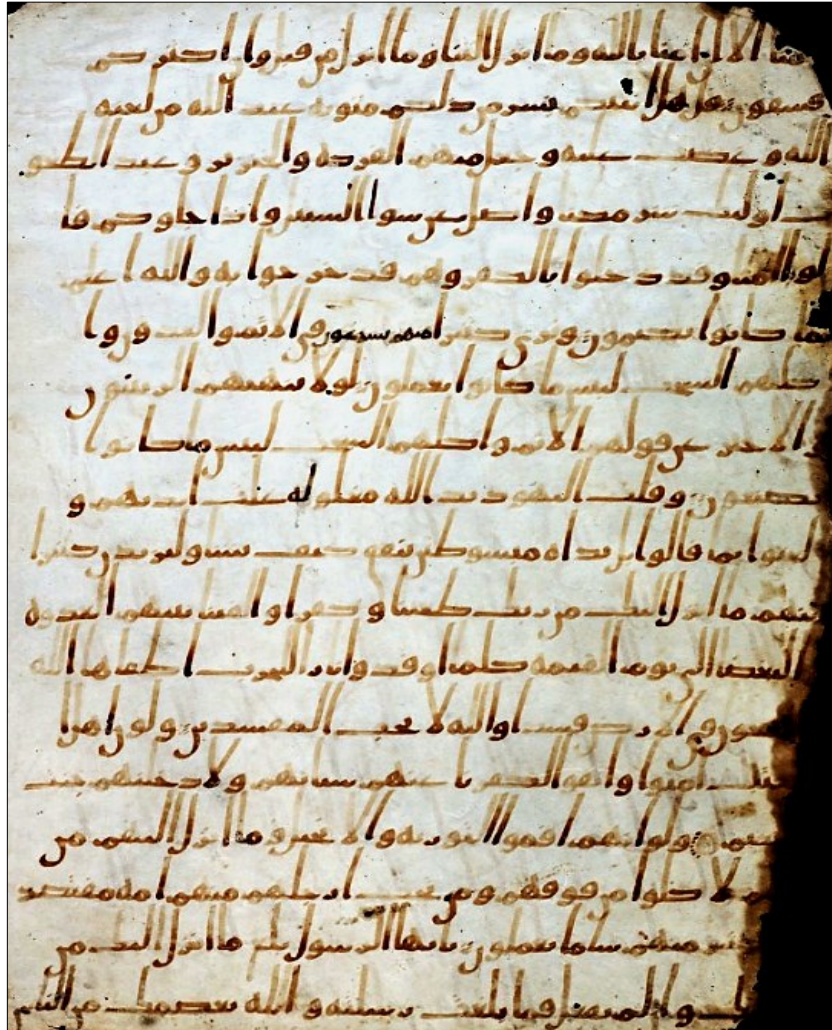 منا الا ان امنا بالله وما انزل الينا وما انزل من قبل وان اكثركم
فسقون قل هل انبئكم بشر من ذلكم مثوبة عند الله من لعنه
الله وغضب عليه وجعل منهم القردة والخنزير وعبد الطغو
ت اولئك شر مكنا واضل عن سوا السبيل واذا جاوكم قا
لوا امنا وقد دخلوا بالكفر وهم قد خرجوا به والله اعلم
بما كانوا يكتمون وترى كثيرا منهم يسرعون في الاثم والعدون وا
كلهم السحت لبئس ما كانوا يعملون لولا ينهيهم الربنيون
والاحبر عن قولهم الاثم واكلهم السحت لبئس ما كانوا
يصنعون وقلت اليهود يد الله مغلولة غلت ايديهم و
لعنوا بما قالوا بل يداه مبسوطتن ينفق كيف يشا وليزيدن كثيرا
منهم ما انزل اليك من ربك طغينا وكفرا والقينا بينهم العدوة
والبغضا الى يوم القيمة كلما اوقدوا نارا للحرب اطفاها الله
ويسعون في الارض فسدا والله لا يحب المفسدين ولو ان اهل
الكتب امنوا واتقوا لكفرنا عنهم سياتهم ولادخلنهم جنت
النعيم ولو انهم اقموا التورية والانجيل وما انزل اليهم من
ربهم لاكلوا من فوقهم ومن تحت ارجلهم منهم امة مقتصد
وكثير منهم سا ما يعملون يايها الرسول بلغ ما انزل اليك من
ربك وان لم تفعل فما بلغت رسلته والله يعصمك من الناس